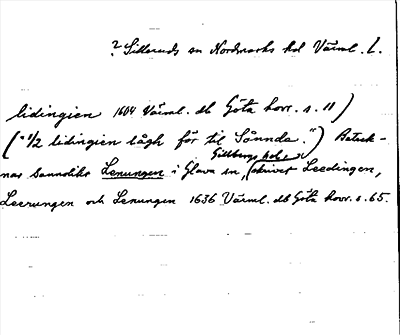 ? Silleruds sn Nordmarks hd Värml. L.
lidingien 1604 Värml. db Göta hovr. s. 11)
("1/2 lidingien lågh för til Sånnda.") Beteck-
Gillbergs hd
nar sannolikt Lenungen i Glava sn, (skrivet Leedingen,
Leerungen och Lenungen 1636 Värml. db Göta hovr. s. 65.